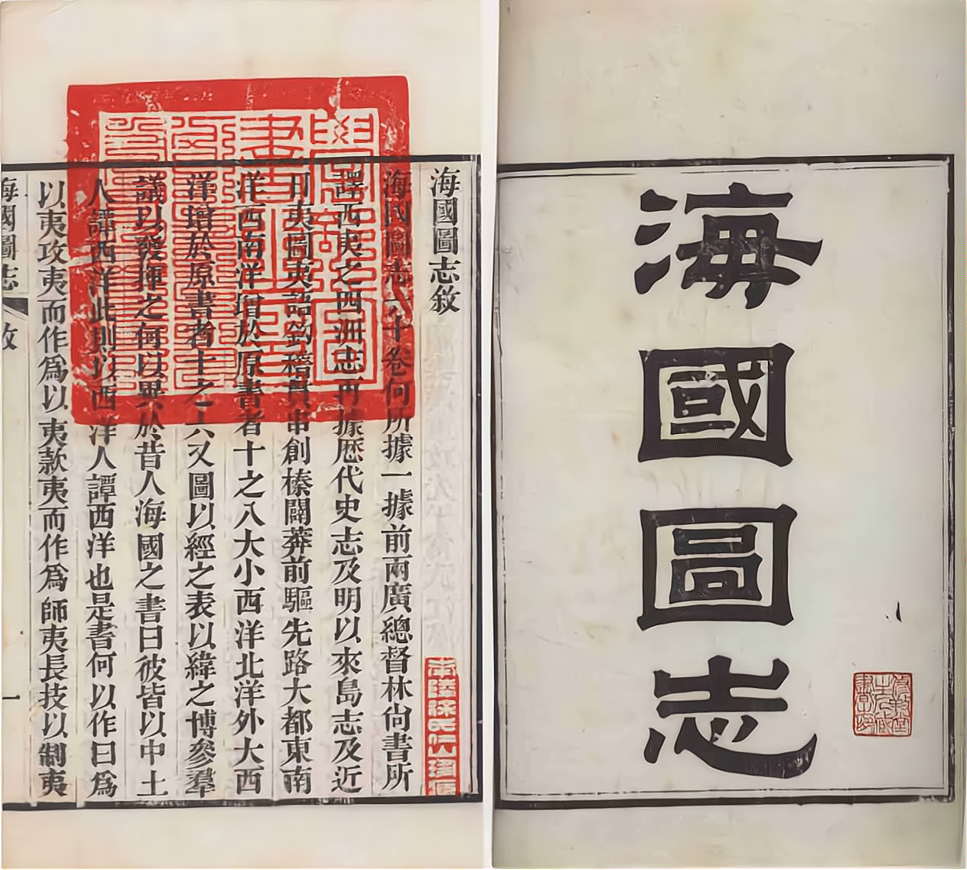 海國圖志
海國圖志敘
海國圖志六十卷何所據一據前兩廣總督林尚書所
譯西夷之四洲志再據厯代史志及明以來島志及近
日夷圖夷語鈎稽貫串創榛闢莽前驅先路大都東南
洋西南洋增於原書者十之八大小西洋北洋外大西
洋增於原書者十之六又圖以經之表以緯之博參羣
議以發揮之何以異於昔人海國之書曰彼皆以中土
人譚西洋此則以西洋人譚西洋也是書何以作曰爲
以夷攻夷而作爲以夷款夷而作爲師夷長技以制夷
海國圖志 敘 一